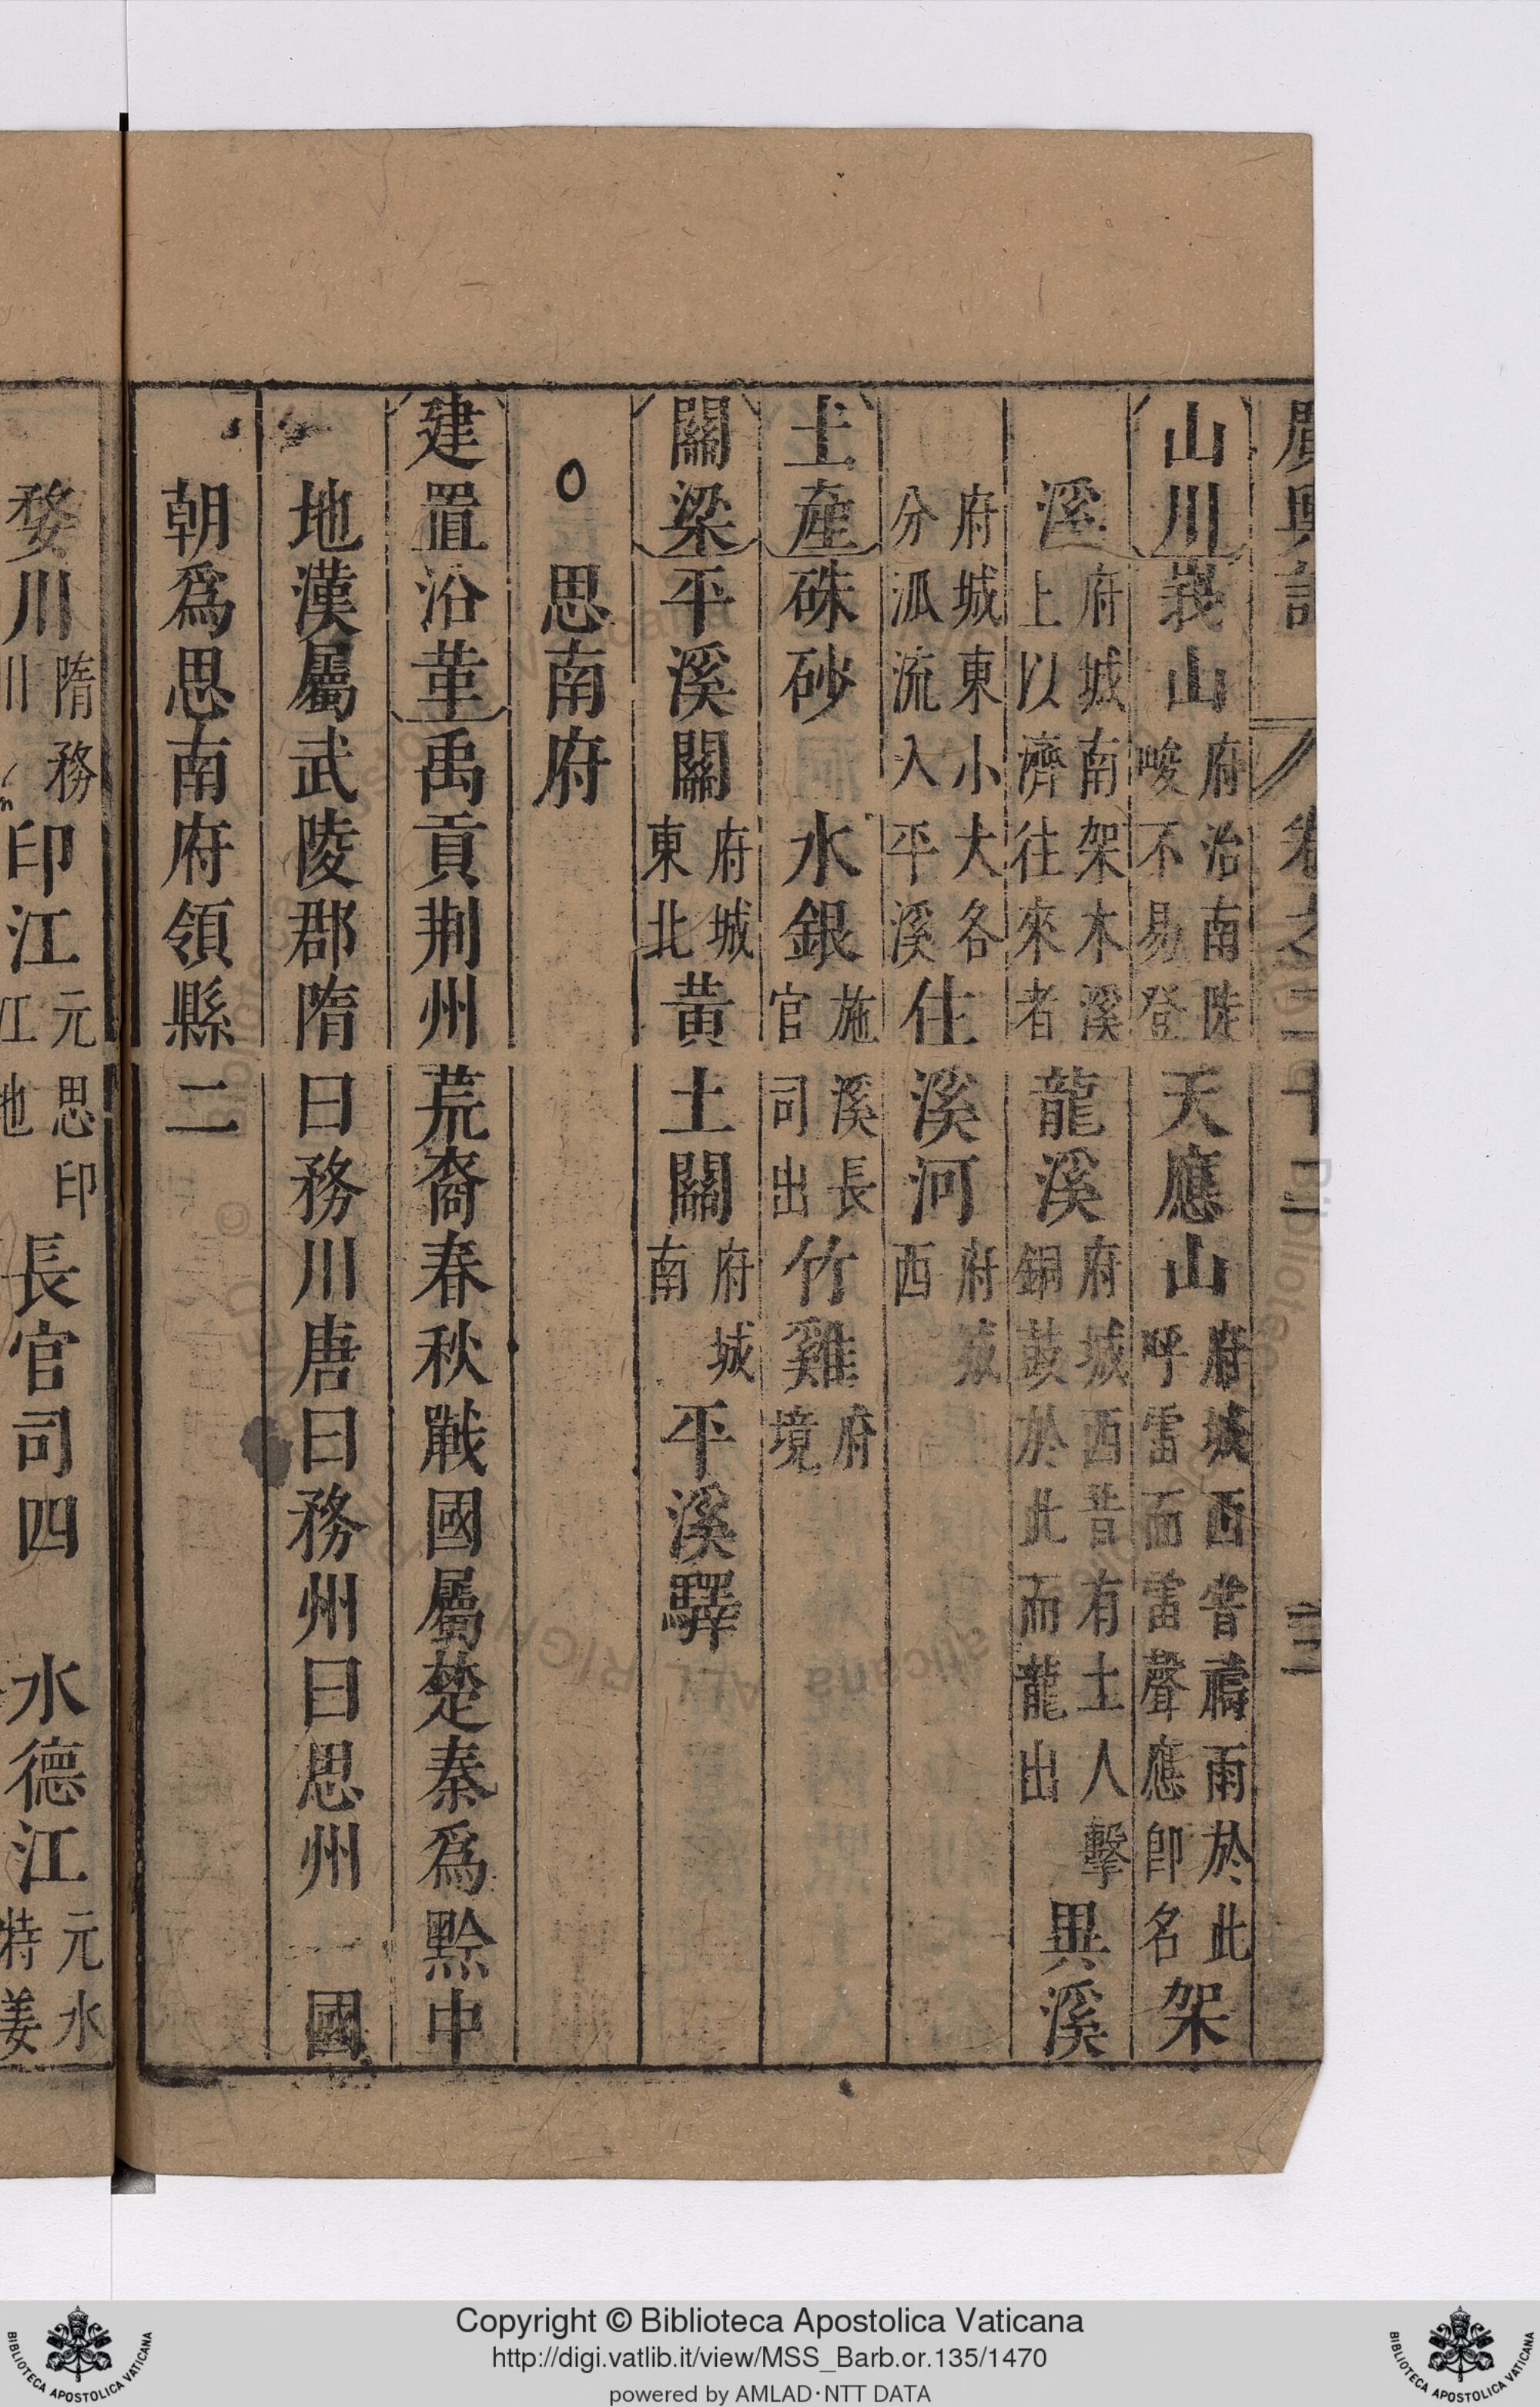 廣輿記 卷之二十二 三
山川峩山府治南陡峻不易登天應山府城西嘗禱雨於此呼雷而雷聲應卽名架
溪府城南架木溪上以濟往來者龍溪府城西昔有土人擊銅鼓於此而龍出異溪
府城東小大各分派流入平溪住溪河府城西
土產硃砂 水銀施溪長官司出竹雞府境
關梁平溪關府城東北黃土關府城南平溪驛
○思南府
建置沿革禹貢荆州荒裔春秋戰國屬楚秦爲黔中
地漢屬武陵郡隋曰務川唐曰務州曰思州 國
朝爲思南府領縣二
婺川隋務川印江元思印江地長官司四 水德江元水特姜
Copyright © Biblioteca Apostolica Vaticana
http://digi.vatlib.it/view/MSS_Barb.or.135/1470
powered by AMLAD·NTT DATA
BIBLIOTECA APOSTOLICA VATICANA
BIBLIOTECA APOSTOLICA VATICANA